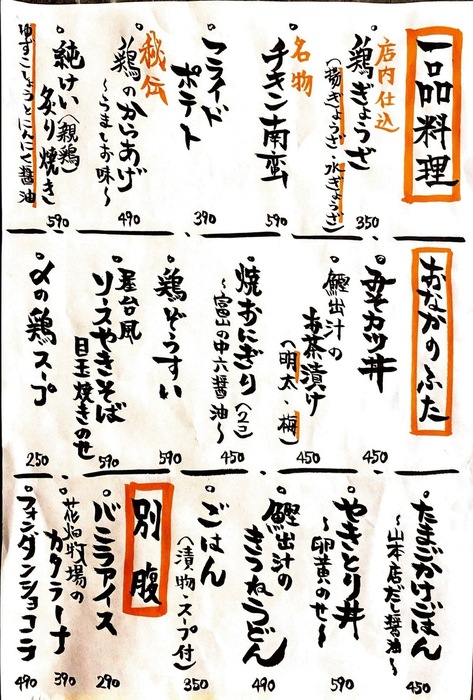 一品料理
店内仕込
鶏ぎょうざ
(揚ぎょうざ・水ぎょうざ)
350
名物
チキン南蛮
590
フライド
ポテト
390
秘伝
鶏のからあげ
〜うましお味〜
490
純けい(親鶏)
炙り焼き
590
ゆずこしょうとにんにく醤油
おなかのふた
みそカツ丼
450
鰹出汁の
お茶漬け
(明太・梅)
450
焼おにぎり(2コ)
〜富山の中六醤油〜
450
鶏ぞうすい
590
屋台風
ソースやきそば
目玉焼きのせ
590
〆の鶏スープ
250
たまごかけごはん
〜山本店だし醤油〜
450
やきとり丼
〜卵黄のせ〜
590
鰹出汁の
きつねうどん
490
ごはん
(漬物・スープ付)
350
別腹
バニラアイス
290
花畑牧場の
カタラーナ
390
フォンダンショコラ
490